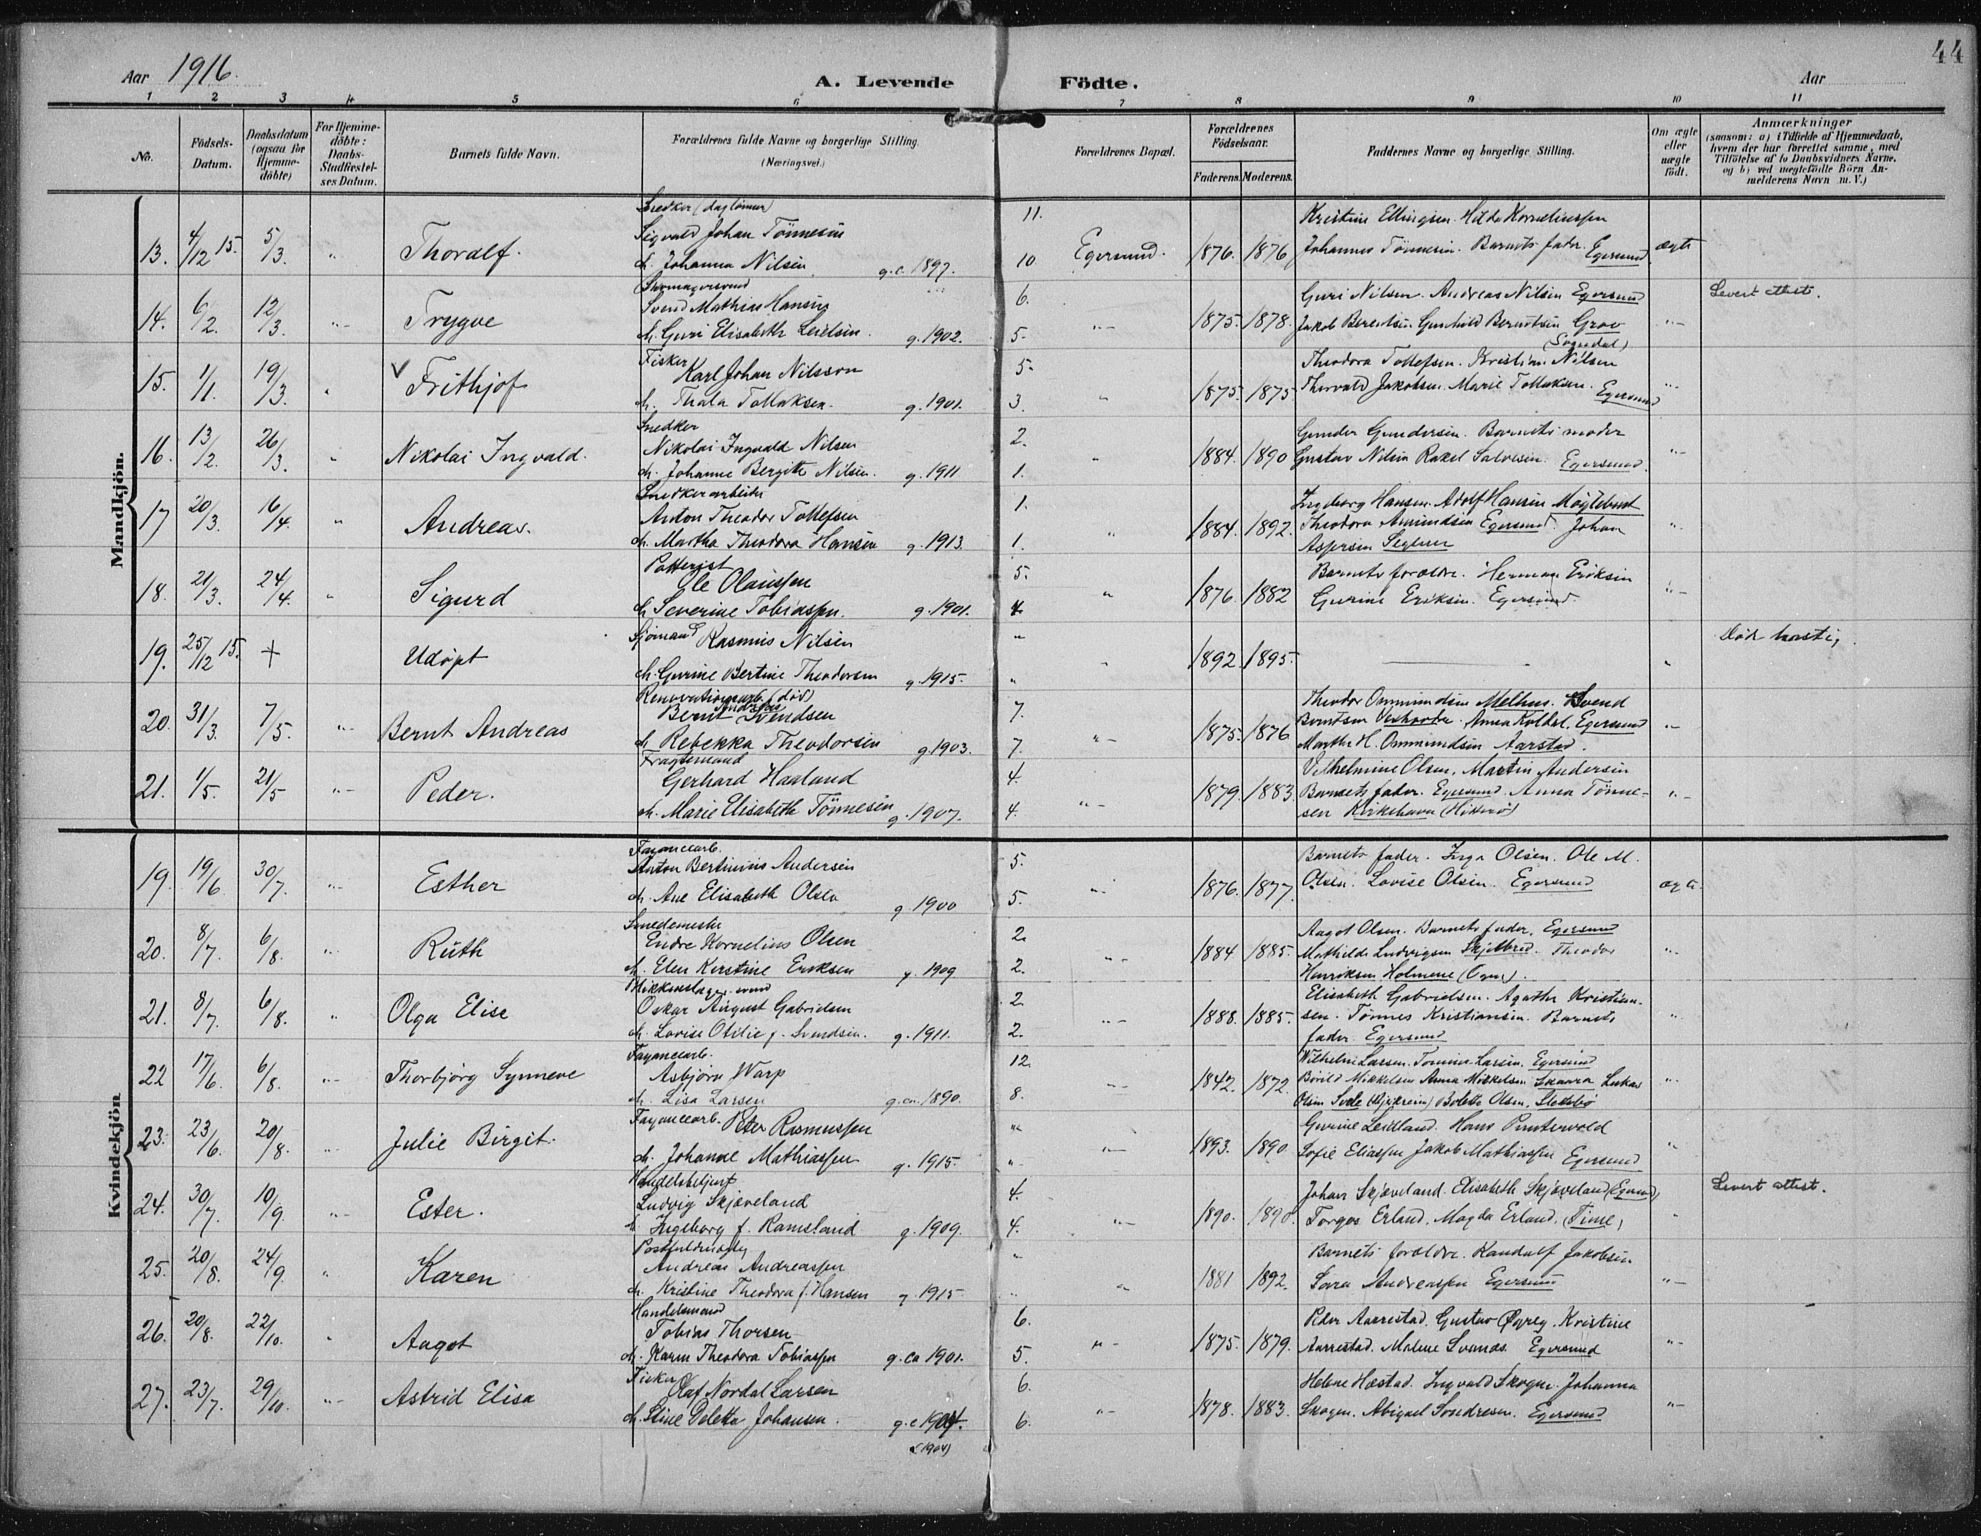 44
Aar 1916. A. Levende Födte. Aar
1 2 3 4 5 6 7 8 9 10 11
No. Födsels-Datum. Daabsdatum (ogsaa for Hjemme-döbte) For Hjemme-döbte: Daabs-Stadfæstel-ses Datum. Barnets fulde Navn. Forældrenes fulde Navne og borgerlige Stilling. (Næringsvei.) Forældrenes Bopæl. Forældrenes Födselsaar. Faderens. Moderens. Faddernes Navne og borgerlige Stilling. Om ægte eller uægte födt. Anmærkninger (saasom: a) i Tilfælde af Hjemmedaab, hvem der har forrettet samme, med Tilföielse af to Daabsvidners Navne, og b) ved uægtefödte Börn An-melderens Navn m. V.)
Mandkjön.
Snedker (dagtönner) 11. Kristine Ellingsen. Hilda Korneliussen
13. 4/12 15. 5/3. " Thoralf. Sigvald Johan Tönnesen Egersund. 1876. 1876 Johannes Tönnesen. Barnets fader. Egersund ægte
h. Johanna Nilsen. g.c. 1897. 10
Skomagersvend
Svend Mathias Hansen 6. Guri Nilsen. Andreas Nilsen Egersund Levert attest.
14. 6/2. 12/3. "- Trygve h. Guri Elisabeth Leidlsen. g. 1902. 5. "- 1875. 1878. Jakob Berentsen Gunhild Berntsen Grov (Sogndal) "-
Fisker
15. 1/1. 19/3. " V Frithjof Karl Johan Nilsson 5. Theodora Tollefsen. Kristine Nilsen
h. Thala Tollaksen. g. 1901. 3. " 1875. 1875 Thorvald Jakobsen. Marie Tollaksen. Egersund "-
Snedker
16. 13/2. 26/3. " Nikolai Ingvald. Nikolai Ingvald Nilsen 2. Gunder Gundersen. Barnets moder
h. Johanne Bergitte Nilsen. g. 1911 1. " 1884. 1890 Gustav Nilsen Rakel Salvesen. Egersund. "-
Snedkerarbeider
17 20/3. 16/4. " Andreas. Anton Theodor Tollefsen 1. Ingeborg Hansen. Adolf Hansen Mögletveit
h. Martha Theodora Hansen g. 1913. 1. " 1884. 1892. Theodora Amundsen Egersund Johan "
Aspersen Seglem
Potterist
18. 21/3. 24/4. " Sigurd Ole Olaussen 5. Barnets forældre. Herman Eriksen
h. Severine Tobiassen. g. 1901. 4. " 1876. 1882 Gurine Eriksen. Egersund. "-
19. 25/12 15. + Udöpt Sjömand Rasmus Nilsen " Död hastig.
h. Gurine Bertine Theodorsen g. 1915. " " 1892 1895. "
Renovationsarb. (död)
20. 31/3. 7/5. "- Bernt Andreas Bernt Andreas Svendsen 7. Theodor Ommundsen Melhus. Svend
h. Rebekka Theodorsen g. 1903. 7. "- 1875. 1876 Berntsen Anna Koldal. Egersund "-
Marthe H. Ommundsen Aarstad.
Fragtemand
Gerhard Haaland 4. Vilhelmine Olsen. Martin Andersen
21. 1/5. 21/5 "- Peder. h. Marie Elisabeth Tönnesen g. 1907. 4. "- 1879. 1883 Barnets fader. Egersund. Anna Tönne-sen Kirkehavn (Hitterö) "-
Kvindekjön
Fayancearb.
Anton Bertinius Andersen 5. Barnets fader. Inga Olsen. Ole M.
19. 19/6. 30/7. "- Esther h. Ane Elisabeth Olsen g. 1900 5. "- 1876. 1877. Olsen. Lovise Olsen. Egersund ægte
Smedemester
20. 8/7. 6/8. " Ruth Endre Kornelius Olsen 2. Aagot Olsen. Barnets fader. Egersund
h. Elen Kirstine Eriksen g. 1909 2. "- 1884 1885. Mathilde Ludvigsen Skjelbred. Theodor "
Henriksen Holmene (Ogne).
Blikkenslager svend
21. 8/7. 6/8. " Olga Elise Oskar August Gabrielsen 2. Elisabeth Gabrielsen. Agathe Kristian-
h. Lovise Otilie f. Svendsen. g. 1911. 2. "- 1888. 1885. sen. Tönnes Kristiansen. Barnets "
fader. Egersund
Fayancearb.
22 17/6. 6/8. "- Thorbjörg Synneve Asbjörn Warp 12. Wilhelm Larsen. Larsen. Egersund
h. Lisa Larsen g. ca. 1890. 8. "- 1842. 1872. Mikkelsen Anna Mikkelsen Skaara Lukas "
Olsen (Bjerkreim) Bolette Olsen. Slettebö
23. 23/6. 20/8. "- Julie Birgit. Fayancearb. Peter Rasmussen " Gurine Leidland. Hans Puntervold
h. Johanne Mathiassen g. 1915. " "- 1893. 1890 Sofie Eliassen Jakob Mathiassen Egersund "
Handelsbetjent
24. 30/7. 10/9. "- Ester. Ludvig Skjæveland 4. Johan Skjæveland. Elisabeth Skjæveland (Egersund) Levert attest.
h. Ingeborg f. Ramsland g. 1909. 4. "- 1890. 1890. Torger Erland. Magda Erland. (Time) "
25. 20/8. 24/9. " Karen Andreas Andreassen " Barnets forældre. Randulf Jakobsen
h. Kristine Theodora f. Hansen g. 1915 " " 1881 1892. Sara Andreassen Egersund "-
Handelsmand
26. 20/8. 22/10. " Aagot Tobias Thorsen 6. Peder Aarrestad. Gustav Kristine
h. Karen Theodora Tobiassen g. ca 1901. 5. "- 1875. 1879. Aarrestad. Malene Svanes Egersund "-
Fisker
27. 23/7. 29/10. "- Astrid Elisa Olaf Nordal Larsen 6. Helene Hæstad. Ingvald Skogen. Johanna
h. Stine Deletta Johansen. g. c 1904. 6. "- 1878. 1883. Skogen. Abigael Sondresen. Egersund "-
(1904)